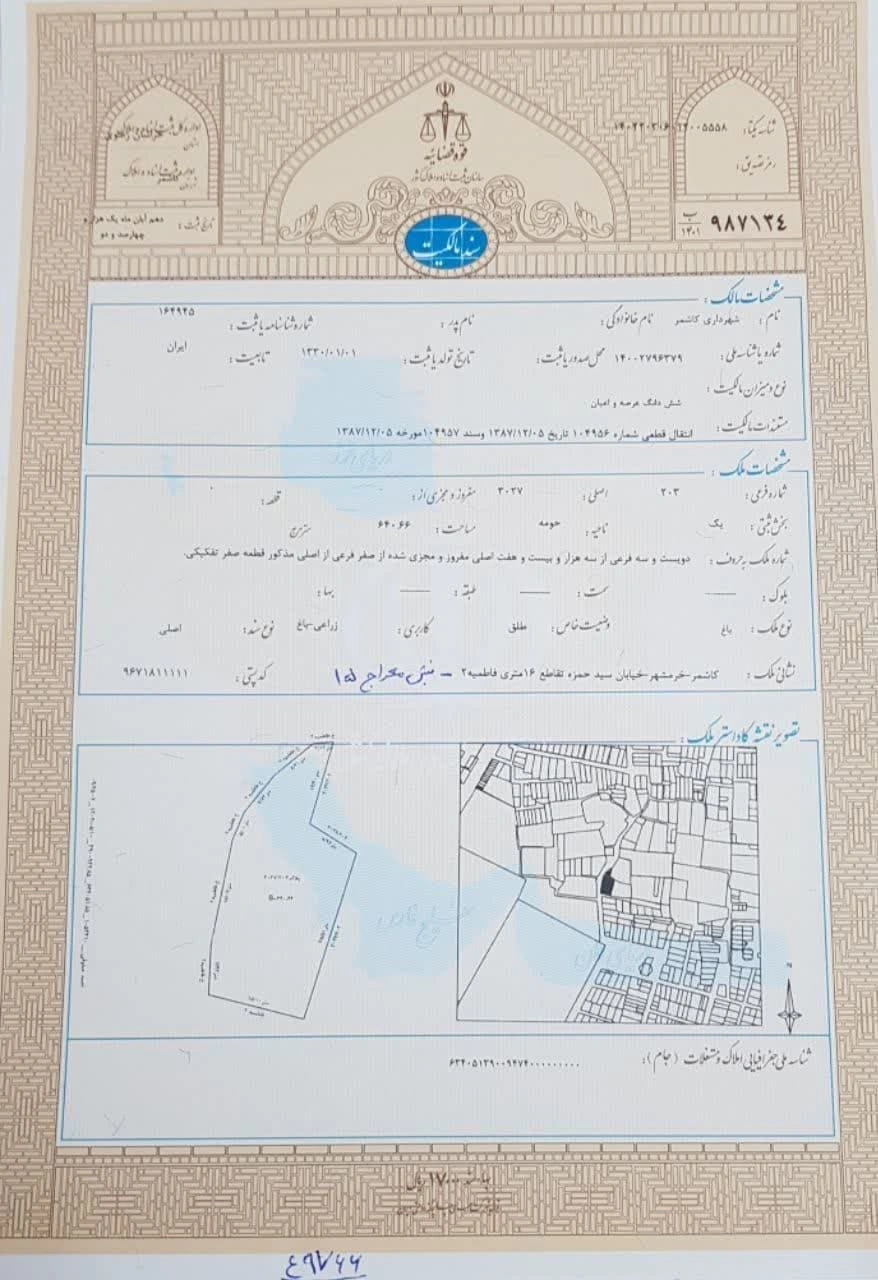 قوه قضائیه
سازمان ثبت اسناد و املاک کشور
شناسه یکتا:
رمز تصدیق:
۹۸۷۱۳٤
ب
۱۴۰۱
تاریخ ثبت: دهم آبان ماه یک هزار و چهارصد و دو
سند مالکیت
مشخصات مالک:
نام: شهرداری کاشمر نام خانوادگی: نام پدر: شماره شناسنامه یا ثبت: ۱۶۴۹۴۵
شماره یا شناسه ملی: ۱۴۰۰۲۷۹۶۳۷۹ محل صدور یا ثبت: تاریخ تولد یا ثبت: ۱۳۳۰/۰۱/۰۱ تابعیت: ایران
نوع و میزان مالکیت:
شش دانگ عرصه و اعیان
مستندات مالکیت: انتقال قطعی شماره ۱۰۴۹۵۶ تاریخ ۱۳۸۷/۱۲/۰۵ وسند ۱۰۴۹۵۷مورخه ۱۳۸۷/۱۲/۰۵
مشخصات ملک:
شماره فرعی: ۲۰۳ اصلی: ۳۰۲۷ مفروز و مجزی از: قطعه:
بخش ثبتی: یک ناحیه: حومه مساحت: ۶۴۰.۶۶ مترمربع
شماره ملک به حروف: دویست و سه فرعی از سه هزار و بیست و هفت اصلی مفروز و مجزی شده از صفر فرعی از اصلی مذکور قطعه صفر تفکیکی،
بلوک: —— سمت: —— طبقه: —— بها:
نوع ملک: باغ وضعیت خاص: طلق کاربری: زراعی-باغ نوع سند: اصلی
نشانی ملک: کاشمر-خرمشهر-خیابان سید حمزه تقاطع ۱۶متری فاطمیه۲ – نبش معراج ۱۵ کدپستی: ۹۶۷۱۸۱۱۱۱۱
تصویر نقشه کاداستر ملک:
شناسه ملی جغرافیایی املاک و مستغلات (جام):
بهاء سند ۱۷۰۰۰ ریال
٤٩٧٦٦